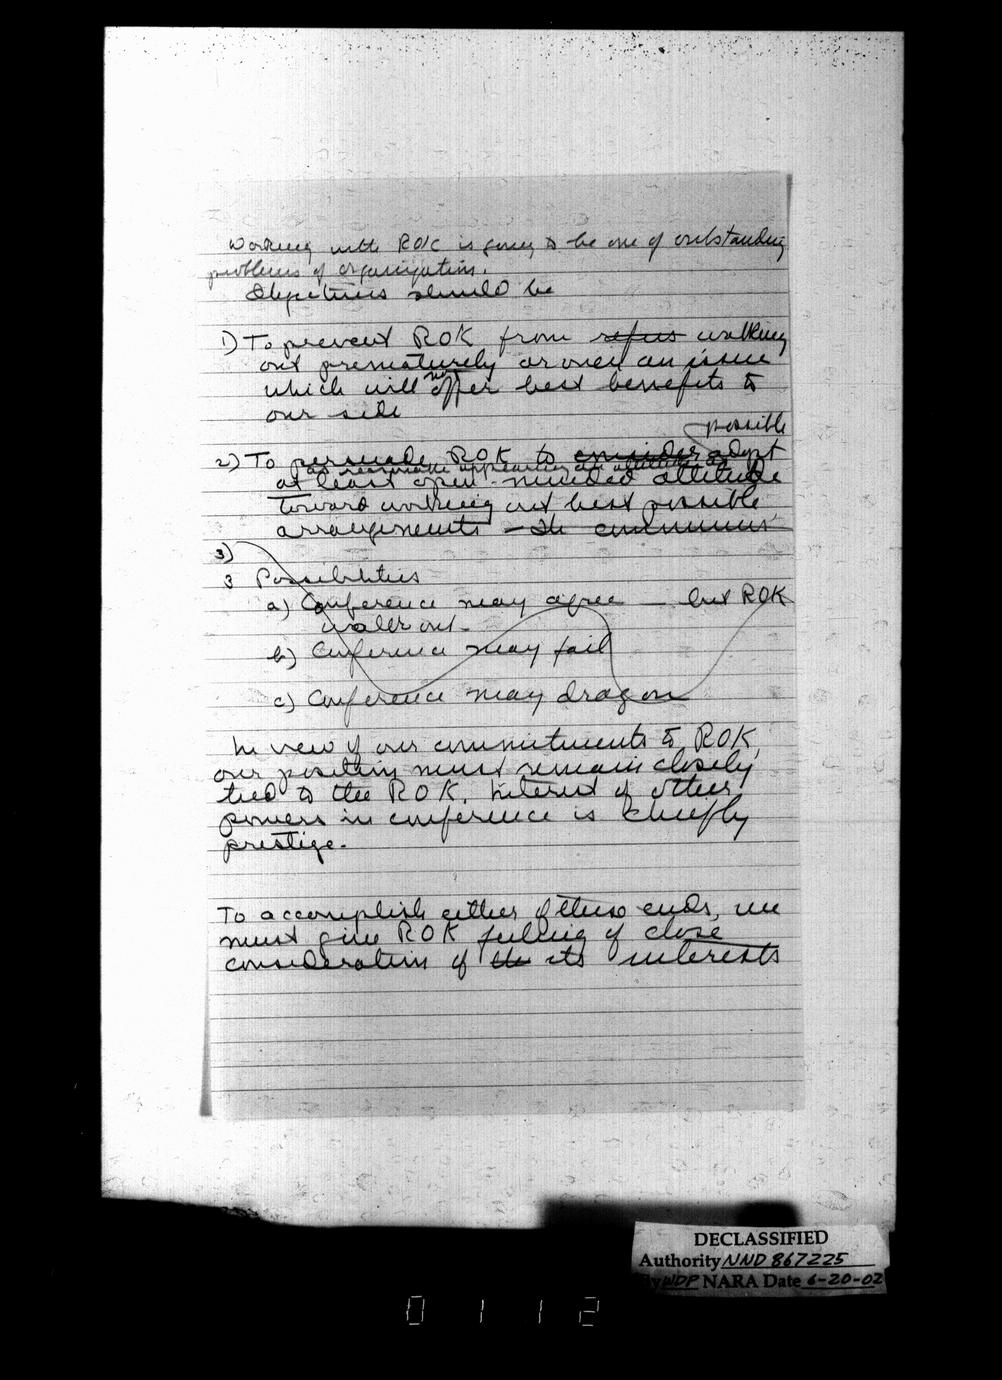 Working with ROK is going to be one of outstanding
problems of organization.
Objectives should be
1) To prevent ROK from refuse walking
out prematurely or over an issue
which will not offer best benefits to
our side
possible
2) To persuade ROK to consider adopt
as reasonable appearing an attitude as
at least open-minded attitude
toward working out best possible
arrangements – the
3)
3 Possibilities
a) Conference may agree — but ROK
walk out.
b) Conference may fail
c) Conference may drag on
In view of our commitments to ROK,
our position must remain closely
tied to the ROK. Interest of other
powers in conference is chiefly
prestige.
To accomplish either of these ends, we
must give ROK feeling of close
consideration of the its interests
DECLASSIFIED
Authority NND 867225
By WDP NARA Date 6-20-02
0112